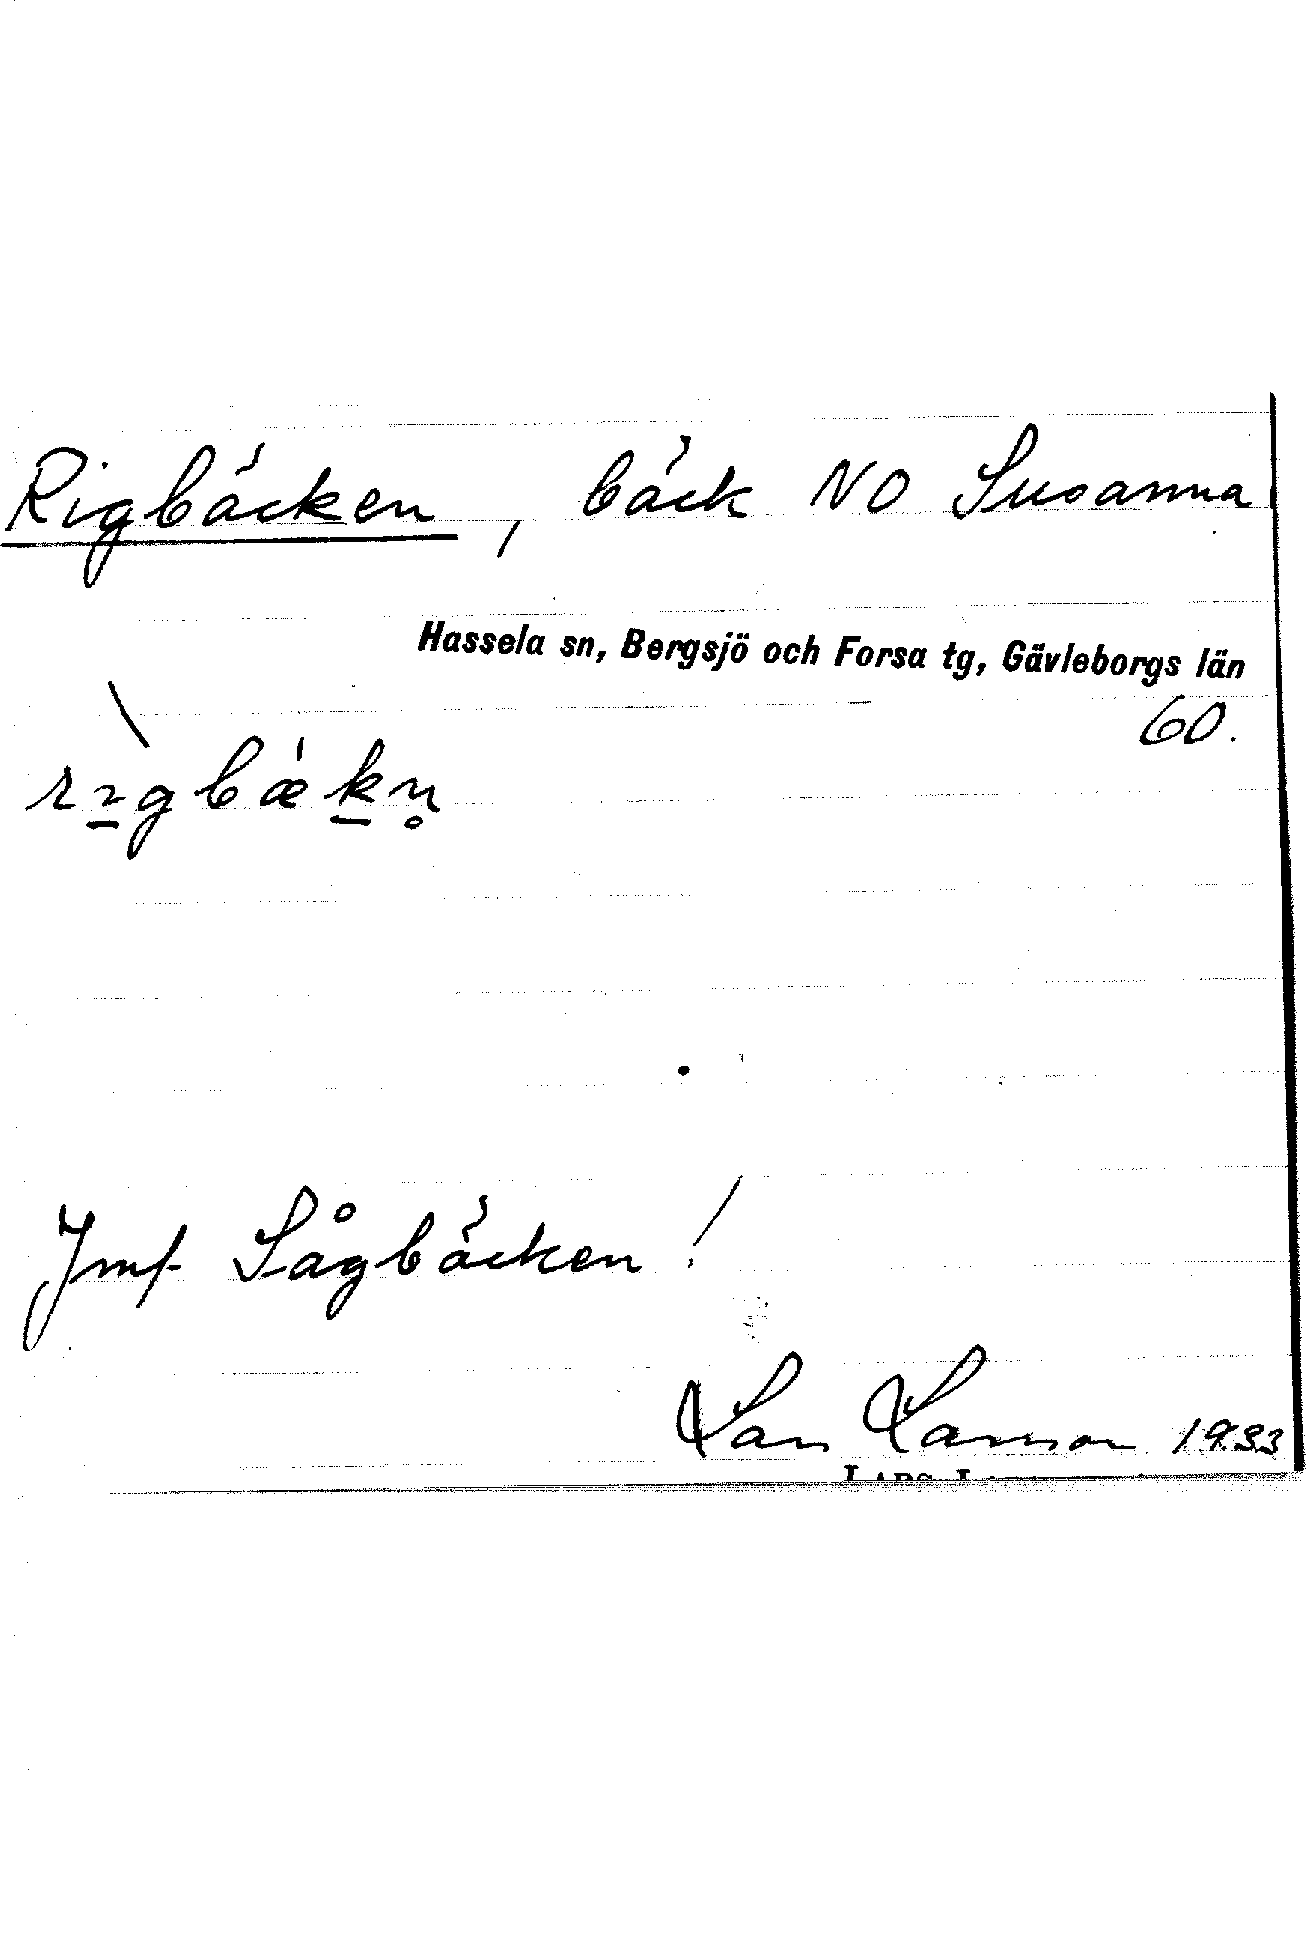 Rigbäcken, bäck NO Susanna
Hassela sn, Bergsjö och Forsa tg, Gävleborgs län
60.
Jmf Sågbäcken!
Lars Larsson 1933